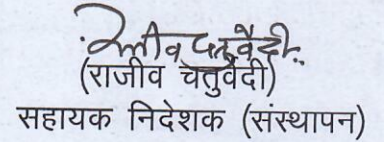 राजीव चतुर्वेदी
(राजीव चतुर्वेदी)
सहायक निदेशक (संस्थापन)